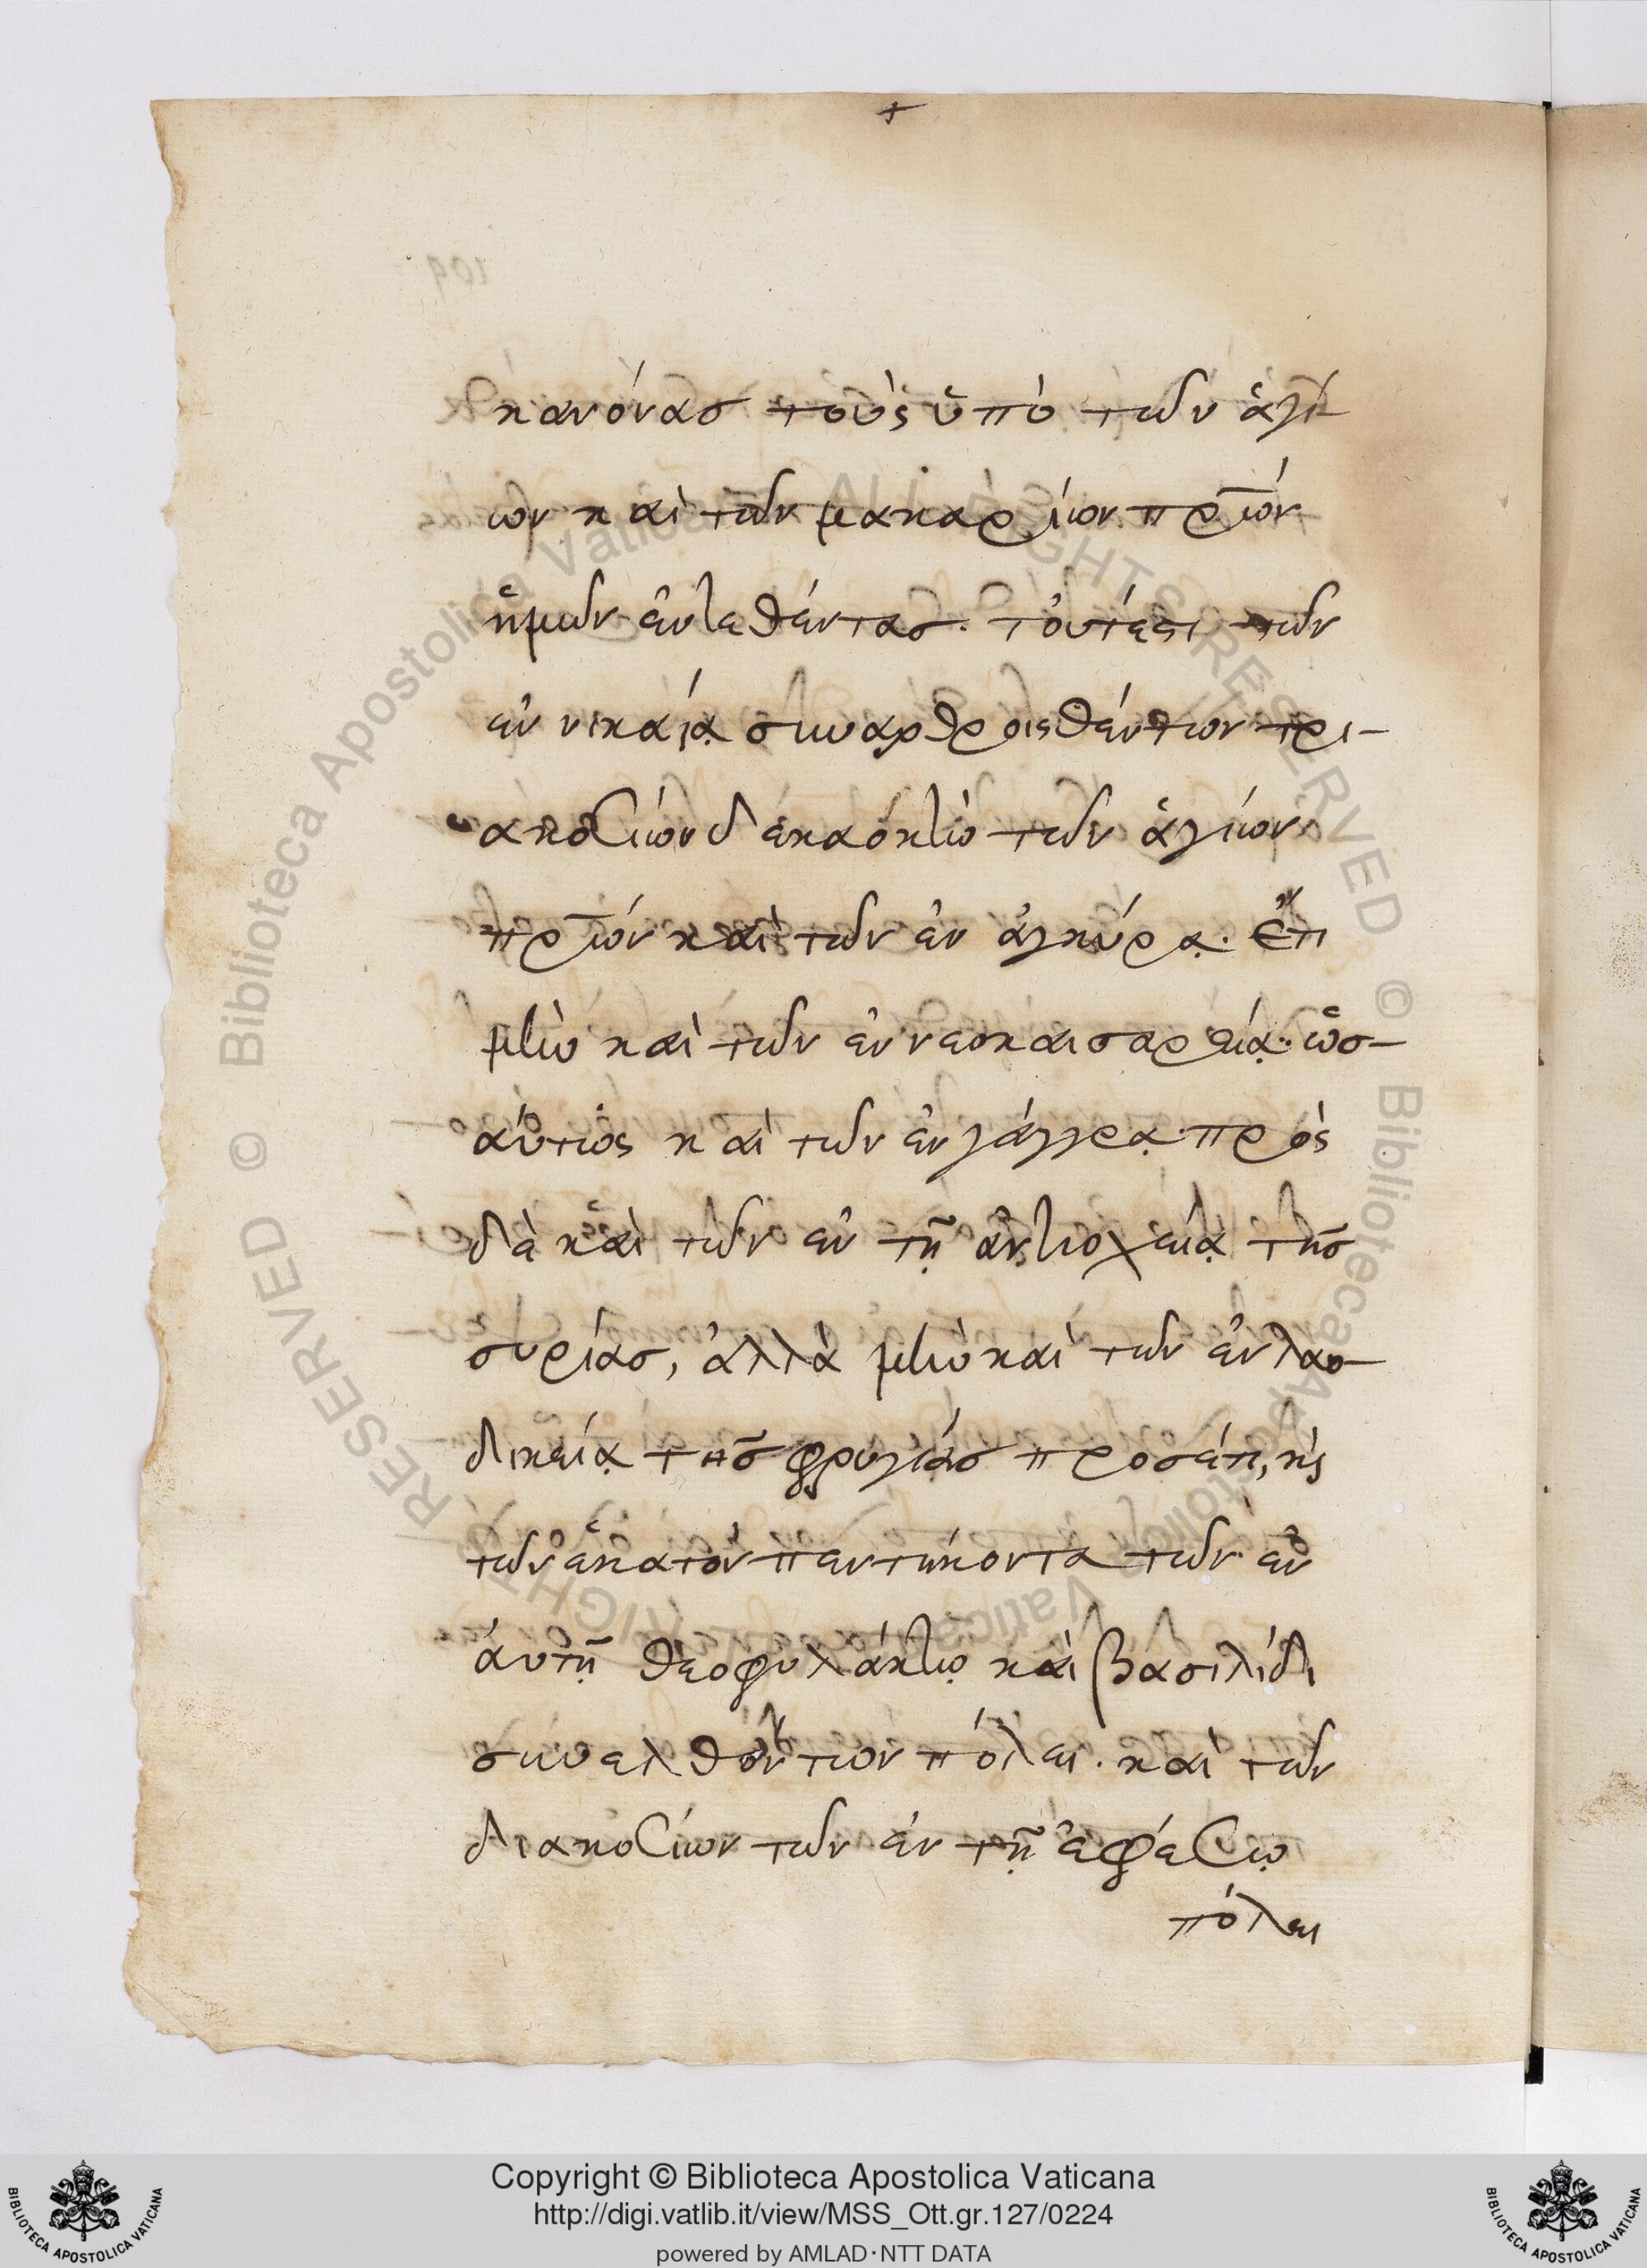 +
κανόνασ τοὺς ὑπὸ τῶν ἁγί
ων καὶ τῶν μακαρίων πρ̅ων
ἡμῶν ἐντεθέντασ. τουτέστι τῶν
ἐν νικαίᾳ συναρθροισθέντων τρι-
ακοσίων δεκαόκτὼ τῶν ἁγίων
πρ̅ων καὶ τῶν ἐν ἀγκύρᾳ. ἔτι
μὴν καὶ τῶν ἐν νεοκαισαρείᾳ. ὡσ-
αύτως καὶ τῶν ἐν γάγγρᾳ. πρὸς
δὲ καὶ τῶν ἐν τῇ ἀντιοχείᾳ τῆσ
συρίασ, ἀλλὰ μὴν καὶ τῶν ἐν λαο-
δικείᾳ τῆσ φρυγίασ προσέτι, κὶς
τῶν ἑκατὸν πεντήκοντα τῶν ἐν
ἀυτῇ θεοφυλάκτῳ καὶ βασιλίδι
συνελθόντων πόλει. καὶ τῶν
διακοσίων τῶν ἐν τῇ ἐφέσῳ
πόλει
Copyright © Biblioteca Apostolica Vaticana
http://digi.vatlib.it/view/MSS_Ott.gr.127/0224
powered by AMLAD·NTT DATA
BIBLIOTECA APOSTOLICA VATICANA
BIBLIOTECA APOSTOLICA VATICANA